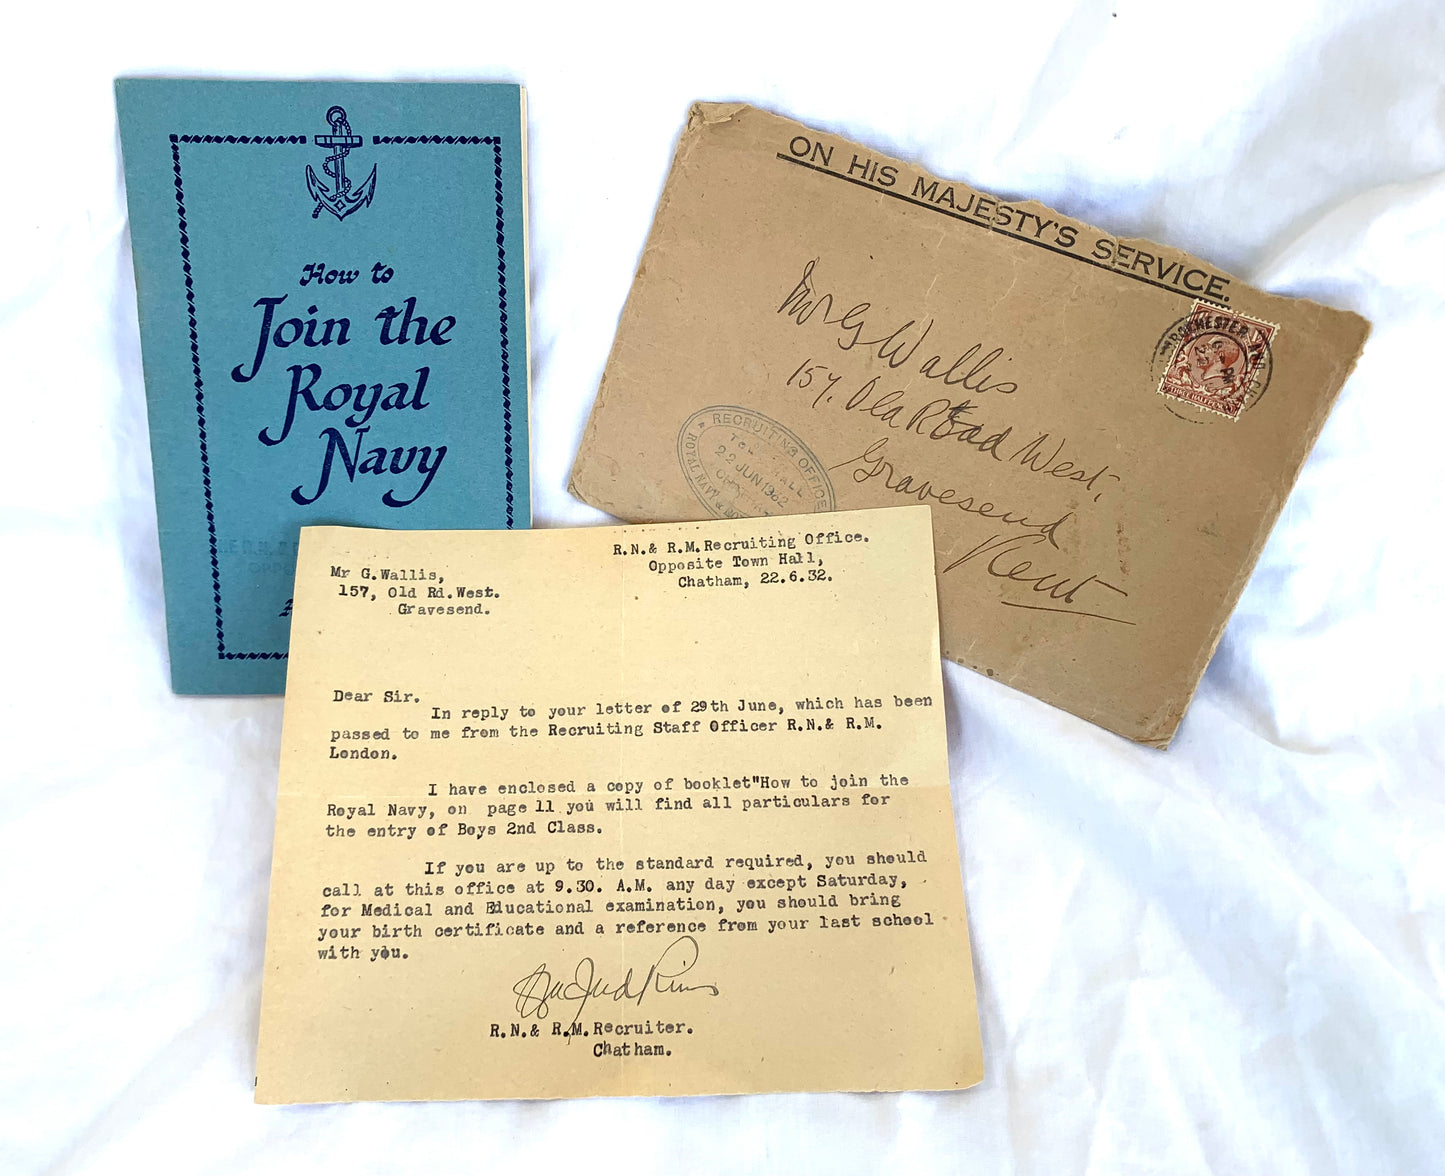 How to
Join the
Royal
Navy
ON HIS MAJESTY'S SERVICE.
Mr G Wallis
157, Old Road West,
Gravesend
Kent
ROCHESTER
THREE HALFPENCE
RECRUITING OFFICE
22 JUN 1932
ROYAL NAVY &
R.N.& R.M.Recruiting Office.
Opposite Town Hall,
Chatham, 22.6.32.
Mr G.Wallis,
157, Old Rd.West.
Gravesend.
Dear Sir.
In reply to your letter of 29th June, which has been
passed to me from the Recruiting Staff Officer R.N.& R.M.
London.
I have enclosed a copy of booklet"How to join the
Royal Navy, on page 11 you will find all particulars for
the entry of Boys 2nd Class.
If you are up to the standard required, you should
call at this office at 9.30. A.M. any day except Saturday,
for Medical and Educational examination, you should bring
your birth certificate and a reference from your last school
with you.
R.N.& R.M.Recruiter.
Chatham.